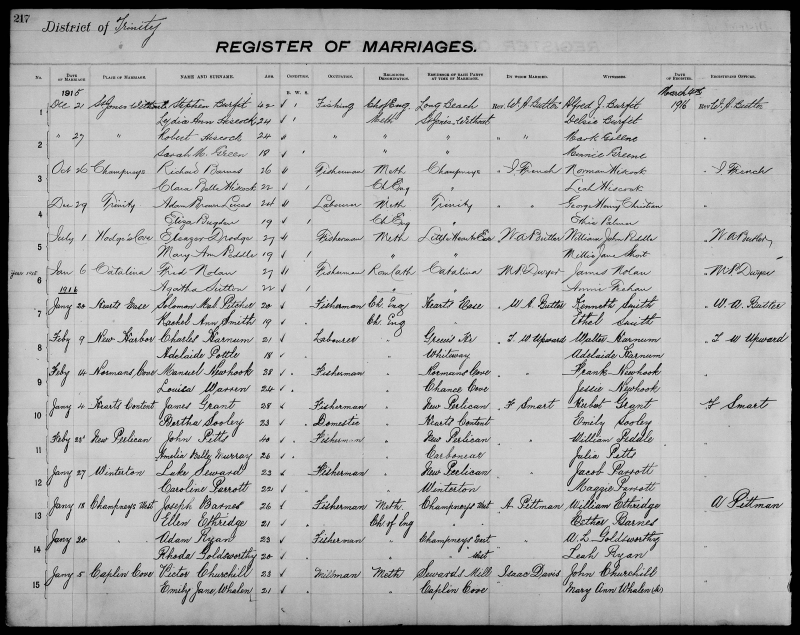 217
District of Trinity
REGISTER OF MARRIAGES.
No. DATE OF MARRIAGE. PLACE OF MARRIAGE. NAME AND SURNAME. AGE. CONDITION. OCCUPATION. RELIGIOUS DENOMINATION. RESIDENCE OF EACH PARTY AT TIME OF MARRIAGE. BY WHOM MARRIED. WITNESSES. DATE OF REGISTER. REGISTERING OFFICER.
B. W. S.
1915 March 4th
1 Dec 21 St Jones Without Stephen Barfet 42 Fishing Ch of Eng Long Beach Rev. W. A. Butler Alfred J. Barfet 1916 Rev W. A. Butler
Lydia Ann Hiscock 24 Meth St Jones Without Delsie Barfet
2 " 27 " Robert Hiscock 24 " " " " Mark Greene "
Sarah M. Green 19 " Minnie Greene
3 Oct 26 Champneys Richard Barnes 26 Fisherman Meth Champneys " I French Norman Hiscock " I French
Clara Belle Hiscock 22 Ch Eng " Leah Hiscock
4 Dec 29 Trinity Adam Brown Lucas 24 Labourer Meth Trinity " " George Henry Christian "
Eliza Bugden 19 Ch Eng " Ethel Palmer
5 July 1 Hodge's Cove Eleazer Drodge 27 Fisherman Meth Little Hearts Ease " W A Butler William John Peddle " W A Butler
Mary Ann Peddle 19 " " Millie Jane Short
6 Jan 6 Catalina Fred Nolan 27 Fisherman Rom Cath Catalina M. P. Dwyer James Nolan " M. P. Dwyer
1916 Agatha Sutton 22 " " Annie Feehan
7 Jany 20 Hearts Ease Solomon Mal. Pitcher 20 Fisherman Ch. Eng Hearts Ease " W A. Butler Kenneth Smith " W. A. Butler
Rachel Ann Smith 19 Ch Eng " Ethel Smith
8 Feby 9 New Harbor Charles Harnum 21 Labourer " Green's Hr " I W Upward Walter Harnum " I W Upward
Adelaide Pottle 18 " Whitway Adelaide Harnum
9 Feby 14 Normans Cove Manuel Newhook 38 Fisherman " Normans Cove " " Frank Newhook "
Louisa Warren 24 " Chance Cove Jessie Newhook
10 Jany 4 Hearts Content James Grant 28 Fisherman " New Perlican " F Smart Herbert Grant " F Smart
Bertha Sooley 23 Domestic " Hearts Content Emily Sooley
11 Feby 28 New Perlican John Petts 40 Fisherman " New Perlican " " William Peddle "
Amelia Murray 26 " Carbonear Julia Petts
12 Jany 27 Winterton Luke Seward 23 Fisherman " New Perlican " " Jacob Parrott "
Caroline Parrott 22 " Winterton Maggie Parrott
13 Jany 18 Champneys West Joseph Barnes 26 Fisherman Meth Champneys West " A Pittman William Ethridge " A Pittman
Ellen Ethridge 21 Ch of Eng " Esther Barnes
14 Jany 20 " Adam Ryan 23 Fisherman " Champneys East " " W. L. Goldsworthy "
Rhoda Goldsworthy 20 " " West Leah Ryan
15 Jany 5 Caplin Cove Victor Churchill 23 Millman Meth Sewards Mill Isaac Davis John Churchill "
Emily Jane Whalen 21 " Caplin Cove Mary Ann Whalen